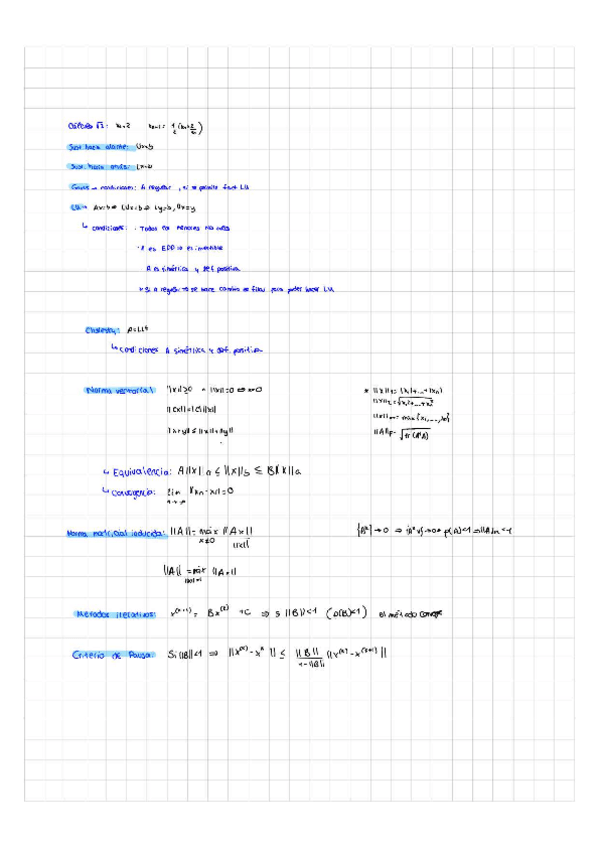 Cálculo √2: x₀=2 xₙ₊₁= 1/2 (xₙ+2/xₙ)
Sust. hacia delante:
Sust. hacia atrás:
Gauss → condiciones: A regular, si se permite fact LU
LU → Ax=b ⇒ LUx=b ⇒ Ly=b, Ux=y
↳ condiciones: · Todos los menores no nulos
· A es EDD → es invertible
A es simétrica y def. positiva
* Si A regular → se hace cambio de filas para poder hacer LU
Cholesky: A=LLᵗ
↳ Condiciones A simétrica y def. positiva
Norma vectorial ||x||≥0 ||x||=0 ⇔ x=0 * ||x||₁=|x₁|+...+|xₙ|
||cx||=|c|||x|| ||x||₂=√x₁²+...+xₙ²
||x+y||≤||x||+||y|| ||x||∞=máx{x₁,...,xₙ}
||A||F=√tr(AᵗA)
↳ Equivalencia: A||x||a ≤ ||x||b ≤ B||x||a
↳ Convergencia: lim ||xₙ-x||=0
Norma matricial inducida: ||A||= máx x≠0 ||Ax||/||x|| {Aᵏ}→0 ⇒
||A|| = máx ||x||=1 ||Ax||
Métodos iterativos: x⁽ᵏ⁺¹⁾= Bx⁽ᵏ⁾ +C ⇒ si ||B||<1 (ρ(B)<1) el método converge
Criterio de Pausa: Si ||B||<1 ⇒ ||x⁽ᵏ⁾-x*|| ≤ ||B||/1-||B|| ||x⁽ᵏ⁾-x⁽ᵏ⁺¹⁾||